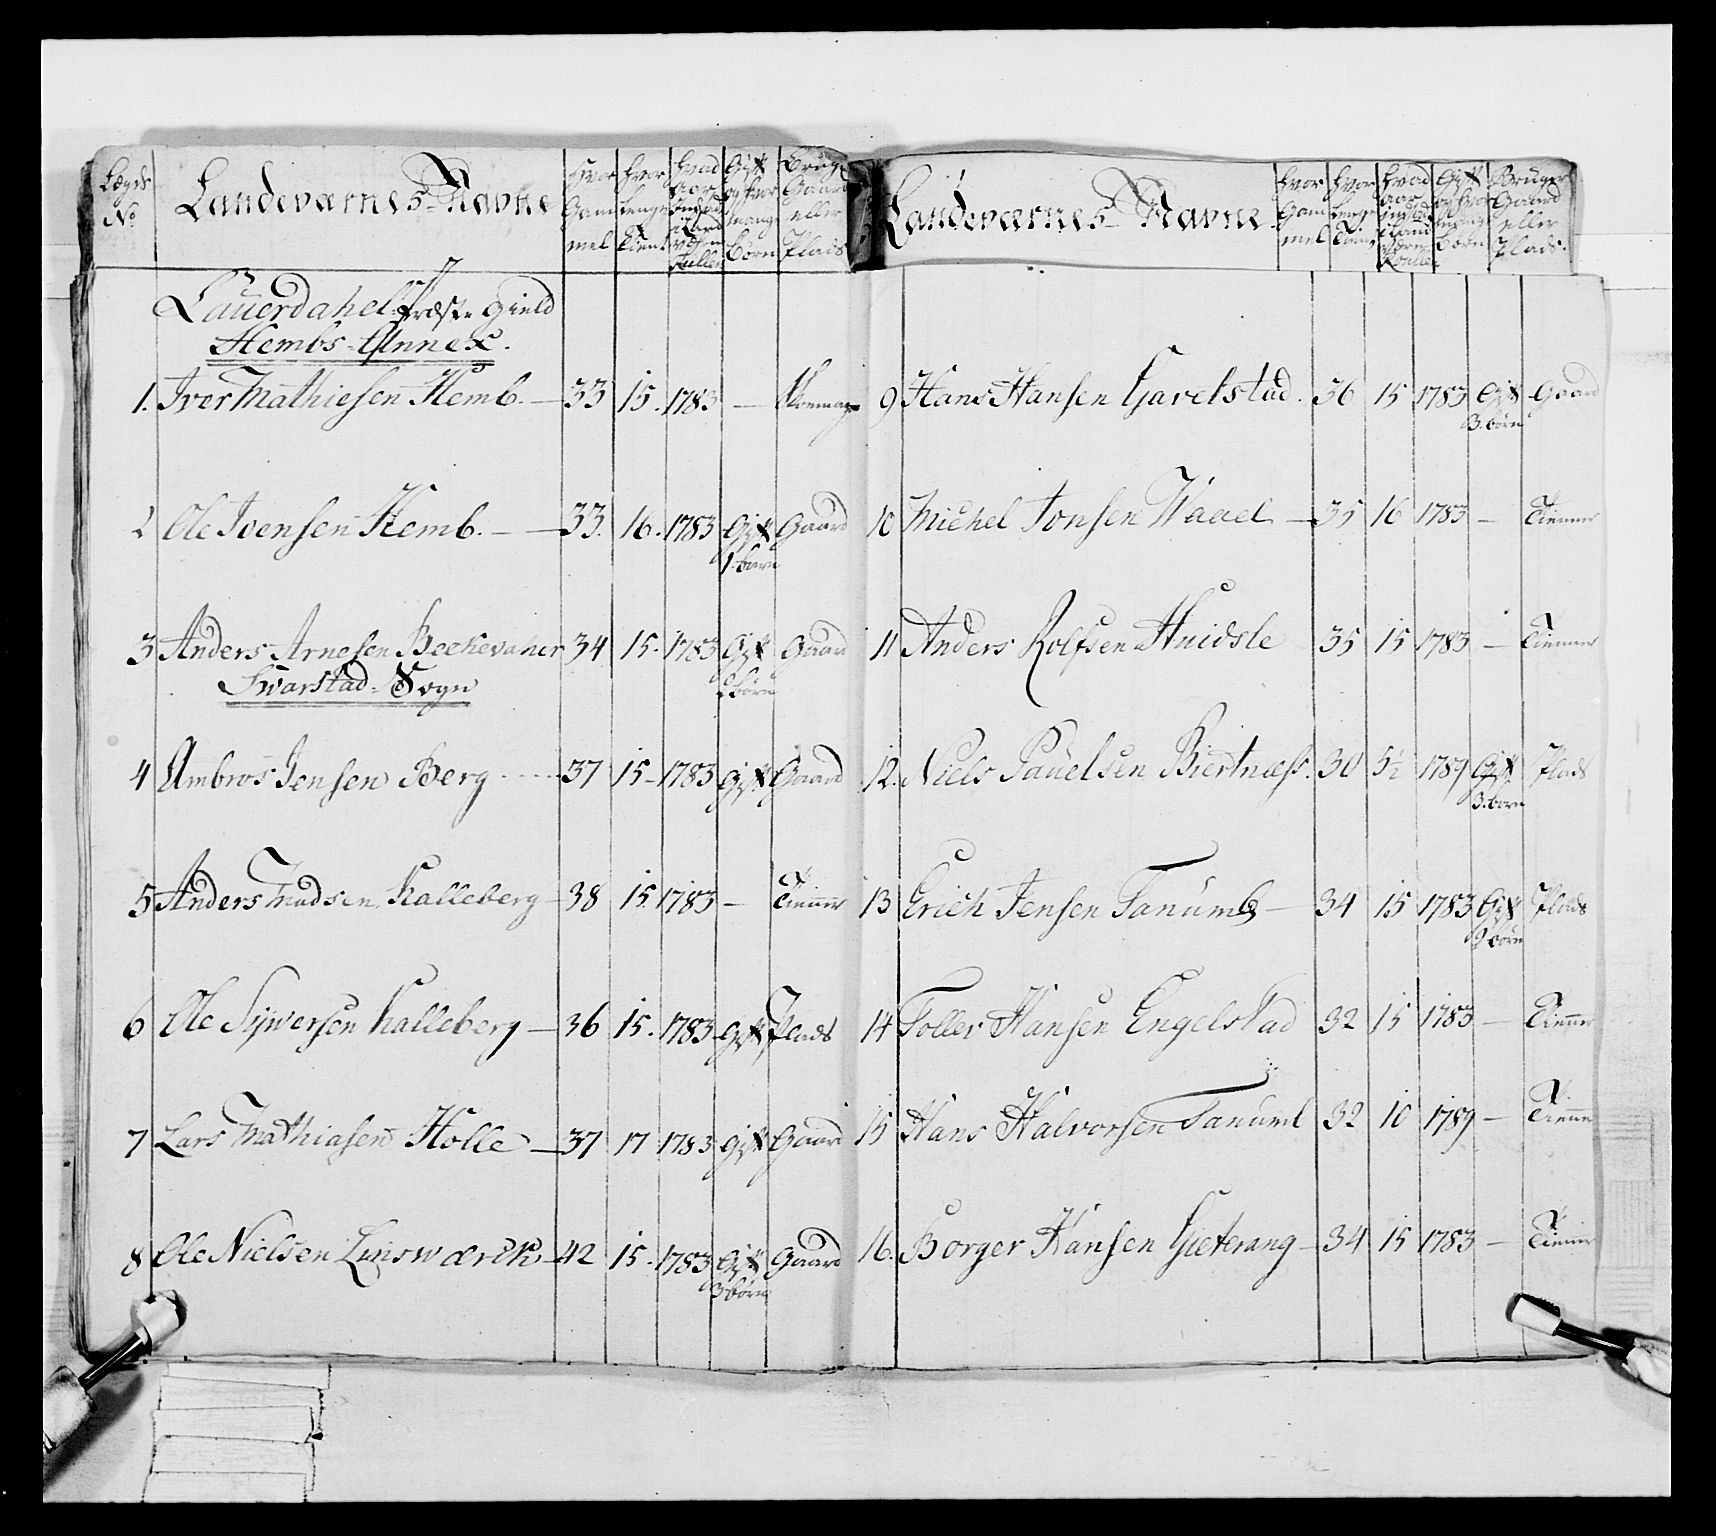 Lægds No Landeværnes Navne Hvor Gam mel Hvor lenge tient Hvad aar Gift og hvor mange børn Brug Gaard eller Plads
Lauerdahel Præste Gield
Hembs Annex.
1. Iver Mathiesen Hemb. — 33 15. 1783 —
2 Ole Ivensen Hemb. — 33. 16. 1783 Gift Gaard
1. barn
3 Anders Arnesen Beckevaher 34 15. 1783 Gift Gaard
2 børn
Svarstad Sogn
4 Ambros Jensen Berg 37 15 1783 Gift Gaard
5 Anders Madsen Kalleberg 38 15 1783 — Tienner
6 Ole Sywersen Kalleberg — 36 15. 1783 Gift Plads
7 Lars Mathiasen Holle — 37 17 1783 Gift Gaard
8 Ole Nielsen Linswærck. 42 15. 1783 Gift Gaard
3 børn
Landeværnes Navne Hvor Gam mel Hvor lenge Tient Hvad aar Gift og hvor mange børn Bruger Gaard eller Plads.
9 Hans Hansen Gavelstad. 36 15 1783 Gift Gaard
3. børn
10 Michel Jonsen Waael — 35 16 1783 — Tienner
11 Anders Rolfsen Huidsle 35 15 1783 — Tienner
12. Niels Pauelsen Biertnæss. 30 5½ 1789 Gift Plads
3. born
13 Erich Jensen Tanumb — 34 15 1783 Gift Plads
2 børn
14 Toller Hansen Engelstad 32 15 1783 — Tienner
15 Hans Halvorsen Tanuml 32 10 1789 — Tienner
16. Borger Hansen Gieterang — 34 15 1783 — Tienner